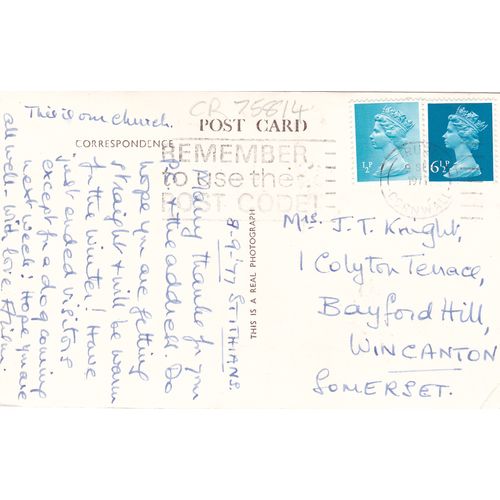 CR 75814
POST CARD
CORRESPONDENCE
THIS IS A REAL PHOTOGRAPH
REMEMBER
to use the
POST CODE
½P
6½P
1977
CORNWALL
This is our church.
8-9-'77 ST ITHIANS.
Many thanks for your
p.c. & the address. Do
hope you are getting
straight & will be warm
for the winter! Have
just ended visitors
except for a dog coming
next week! Hope you are
all well with love
Mrs. J. T. Knight,
1 Colyton Terrace,
Bayford Hill,
WINCANTON
SOMERSET.